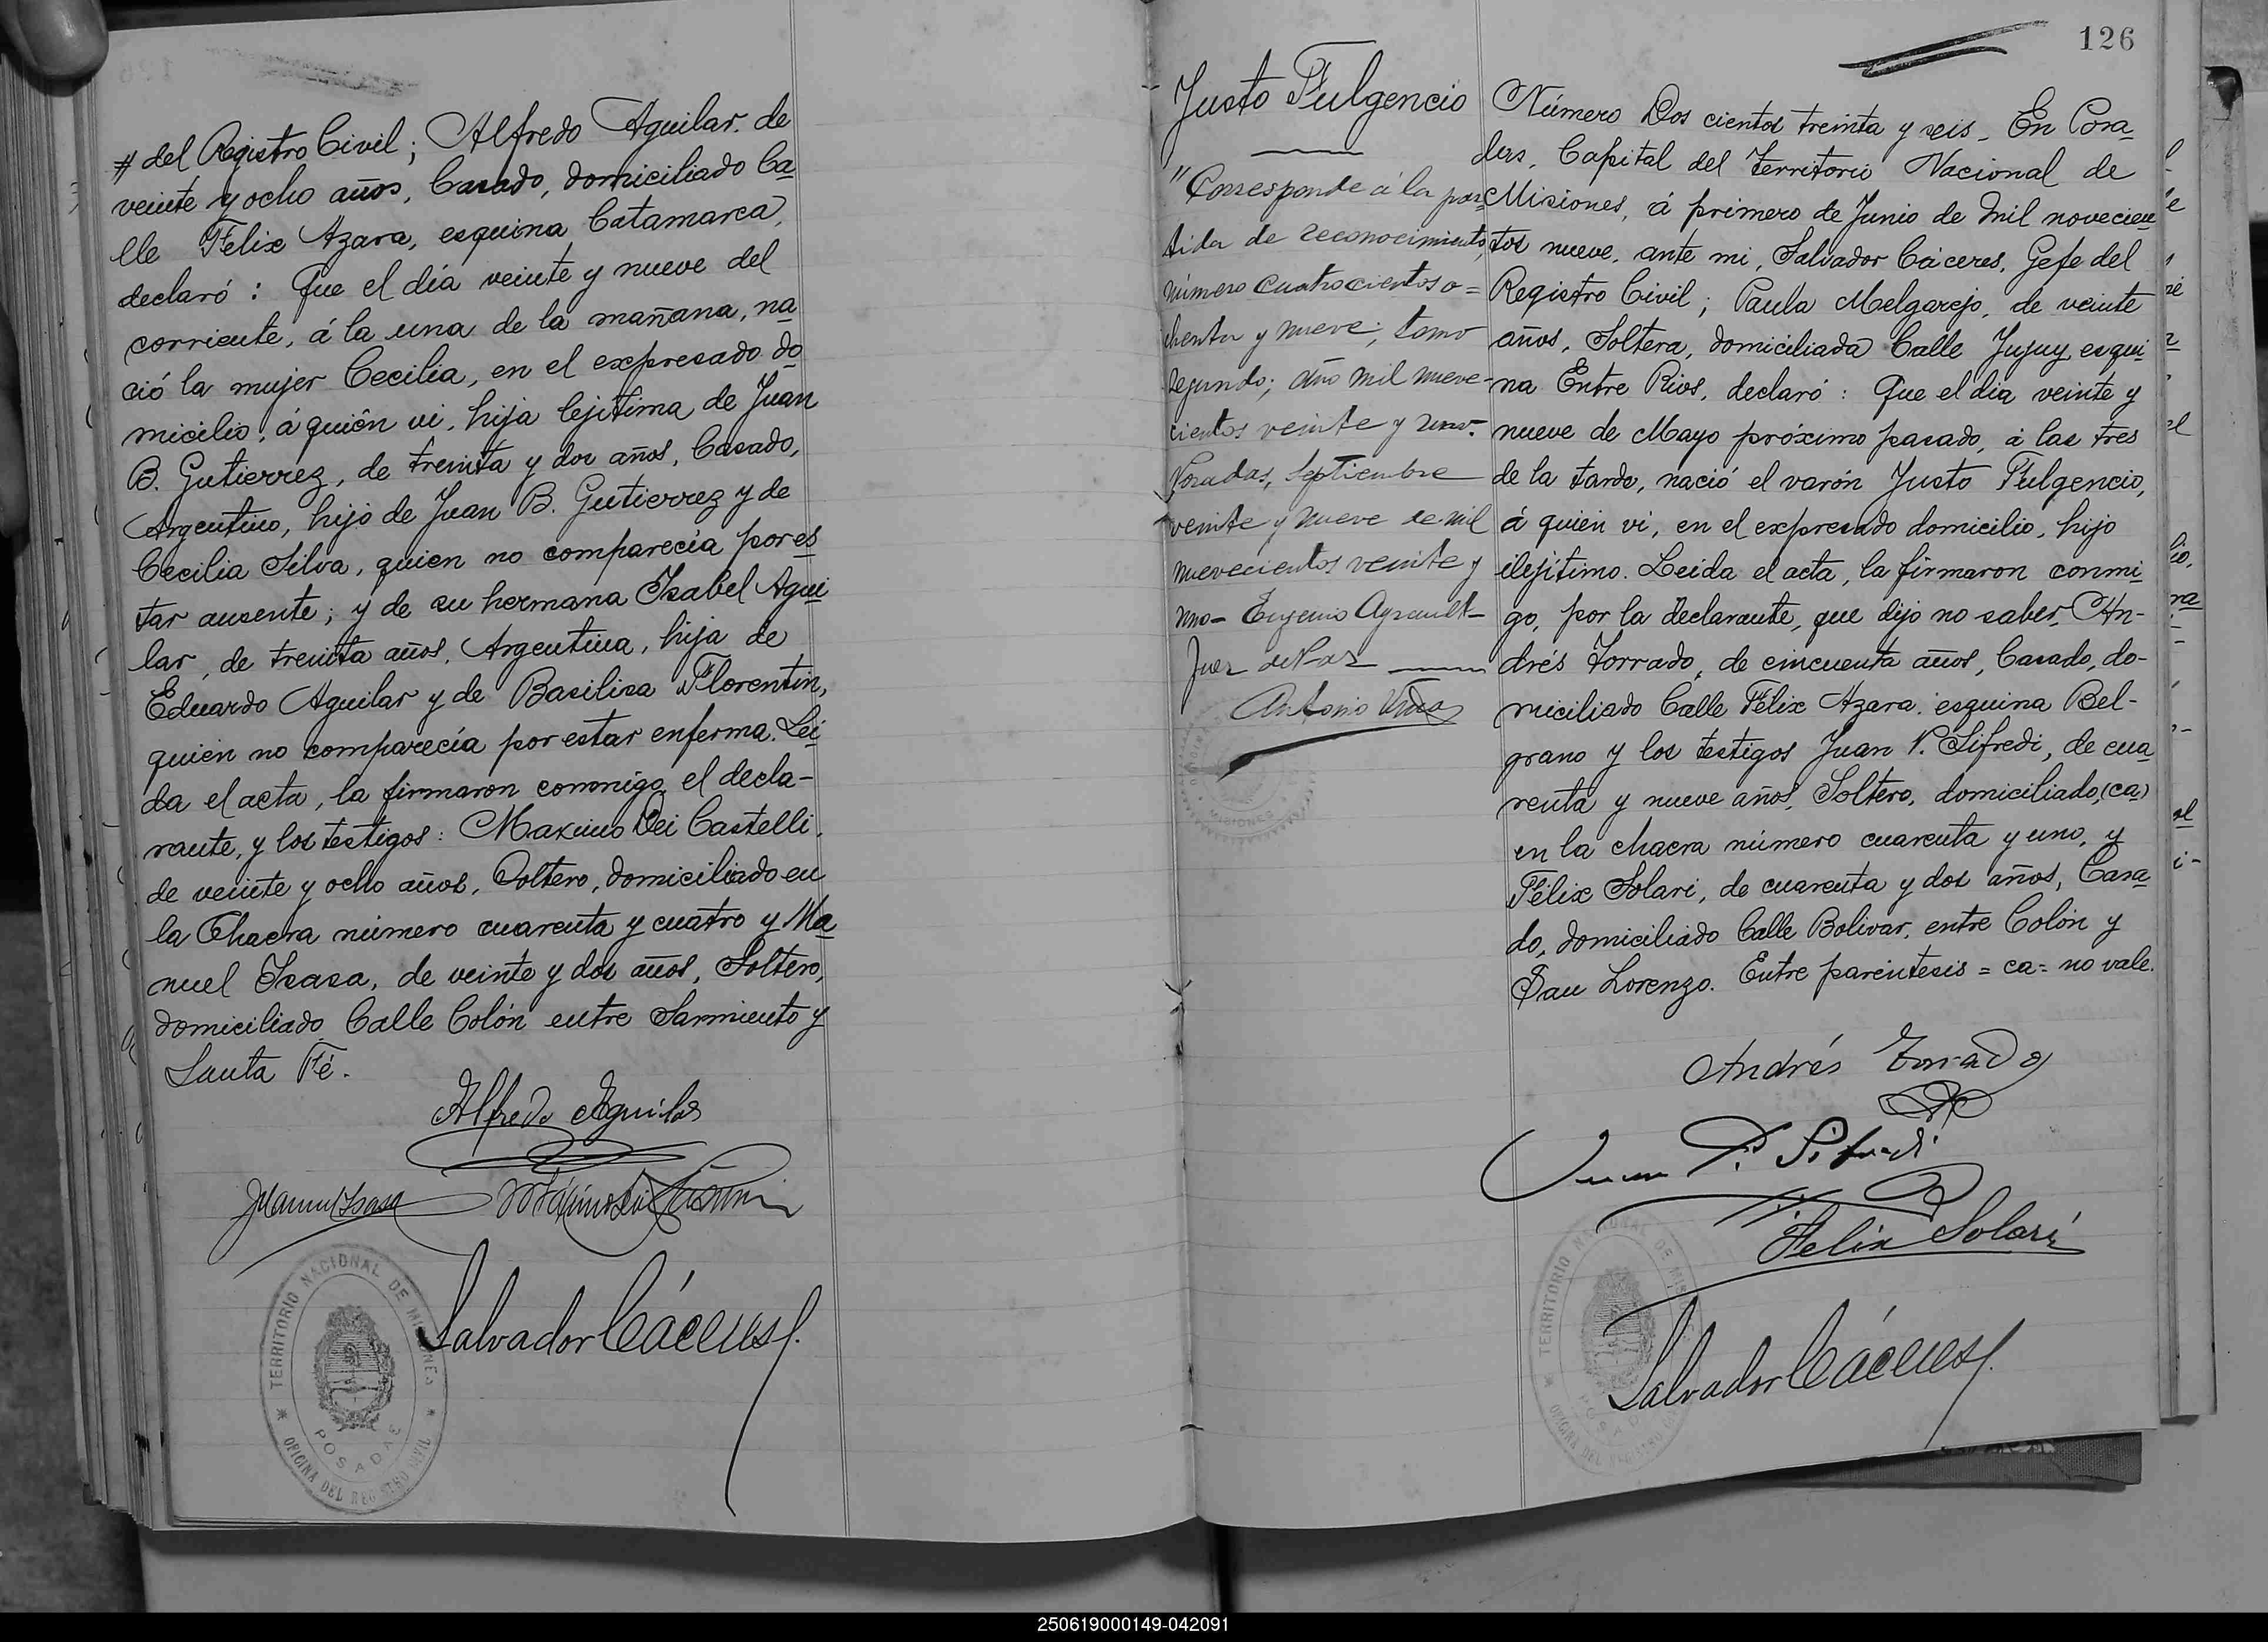 # del Registro Civil; Alfredo Aguilar. de
veinte y ocho años, Casado, domiciliado Ca
lle Felix Azara, esquina Catamarca,
declaró: Que el día veinte y nueve del
corriente, á la una de la mañana, na
ció la mujer Cecilia, en el expresado do
micilio, á quién vi, hija lejítima de Juan
B. Gutierrez, de treinta y dos años, Casado,
Argentino, hijo de Juan B. Gutierrez y de
Cecilia Silva, quien no comparecía por es
tar ausente; y de su hermana Isabel Agui
lar, de treinta años, Argentina, hija de
Eduardo Aguilar y de Basilisa Florentin,
quién no comparecía por estar enferma. Lei
da el acta, la firmaron conmigo, el decla-
rante, y los testigos: Maximo Dei Castelli,
de veinte y ocho años, Soltero, domiciliado en
la Chacra número cuarenta y cuatro y Ma
nuel Isasa, de veinte y dos años, Soltero,
domiciliado Calle Colón entre Sarmiento y
Santa Fé.
Alfredo Aguilar
Manuel Isasa
Salvador Cáceres
TERRITORIO NACIONAL DE MISIONES
POSADAS
OFICINA DEL REGISTRO CIVIL
126
Justo Fulgencio
"Corresponde á la par=
tida de reconocimiento,
número cuatrocientos o=
chenta y nueve, tomo
segundo; año mil nueve-
cientos veinte y uno.
Posadas, Septiembre
veinte y nueve de mil
nuevecientos veinte y
uno- Eugenio
Juez de Paz
Antonio
MISIONES
Número Dos cientos treinta y seis. En Posa
das, Capital del Territorio Nacional de
Misiones, á primero de Junio de mil novecien
tos nueve, ante mi, Salvador Cáceres, Gefe del
Registro Civil; Paula Melgarejo, de veinte
años, Soltera, domiciliada Calle Jujuy esqui
na Entre Rios, declaró: Que el día veinte y
nueve de Mayo próximo pasado, á las tres
de la tarde, nació el varón Justo Fulgencio,
á quién vi, en el expresado domicilio, hijo
ilejítimo. Leida el acta, la firmaron conmi
go, por la declarante, que dijo no saber, An-
drés Torrado, de cincuenta años, Casado, do-
miciliado Calle Félix Azara, esquina Bel-
grano y los testigos Juan P. Sifredi, de cua
renta y nueve años, Soltero, domiciliado, (ca)
en la chacra número cuarenta y uno, y
Félix Solari, de cuarenta y dos años, Casa
do, domiciliado Calle Bolivar, entre Colón y
San Lorenzo. Entre paréntesis = ca = no vale.
Andrés Torrado
Juan P. Sifredi
Felix Solari
Salvador Cáceres
TERRITORIO NACIONAL DE MISIONES
POSADAS
OFICINA DEL REGISTRO CIVIL
250619000149-042091